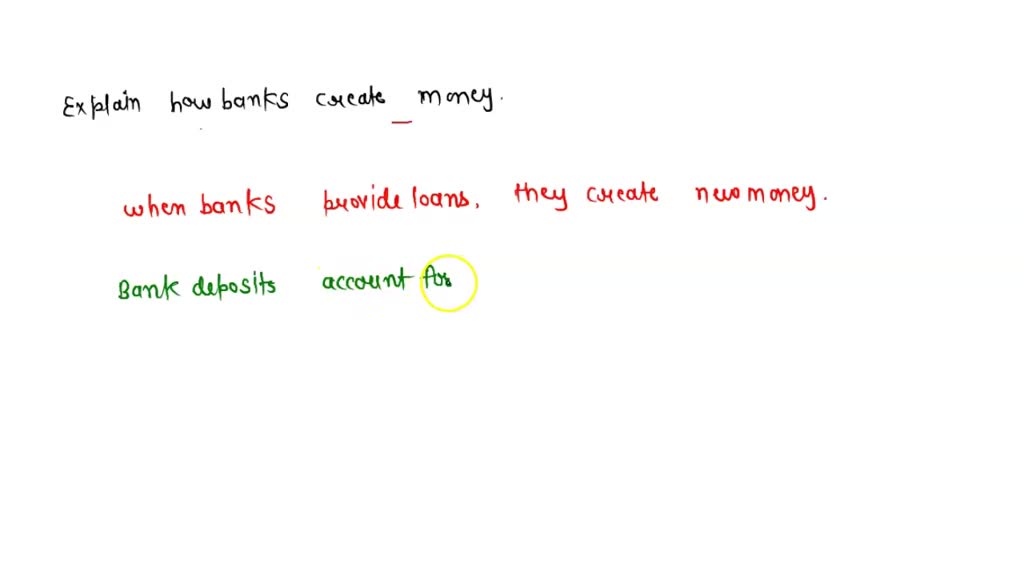 Explain how banks create money.
when banks provide loans, they create new money.
Bank deposits account for